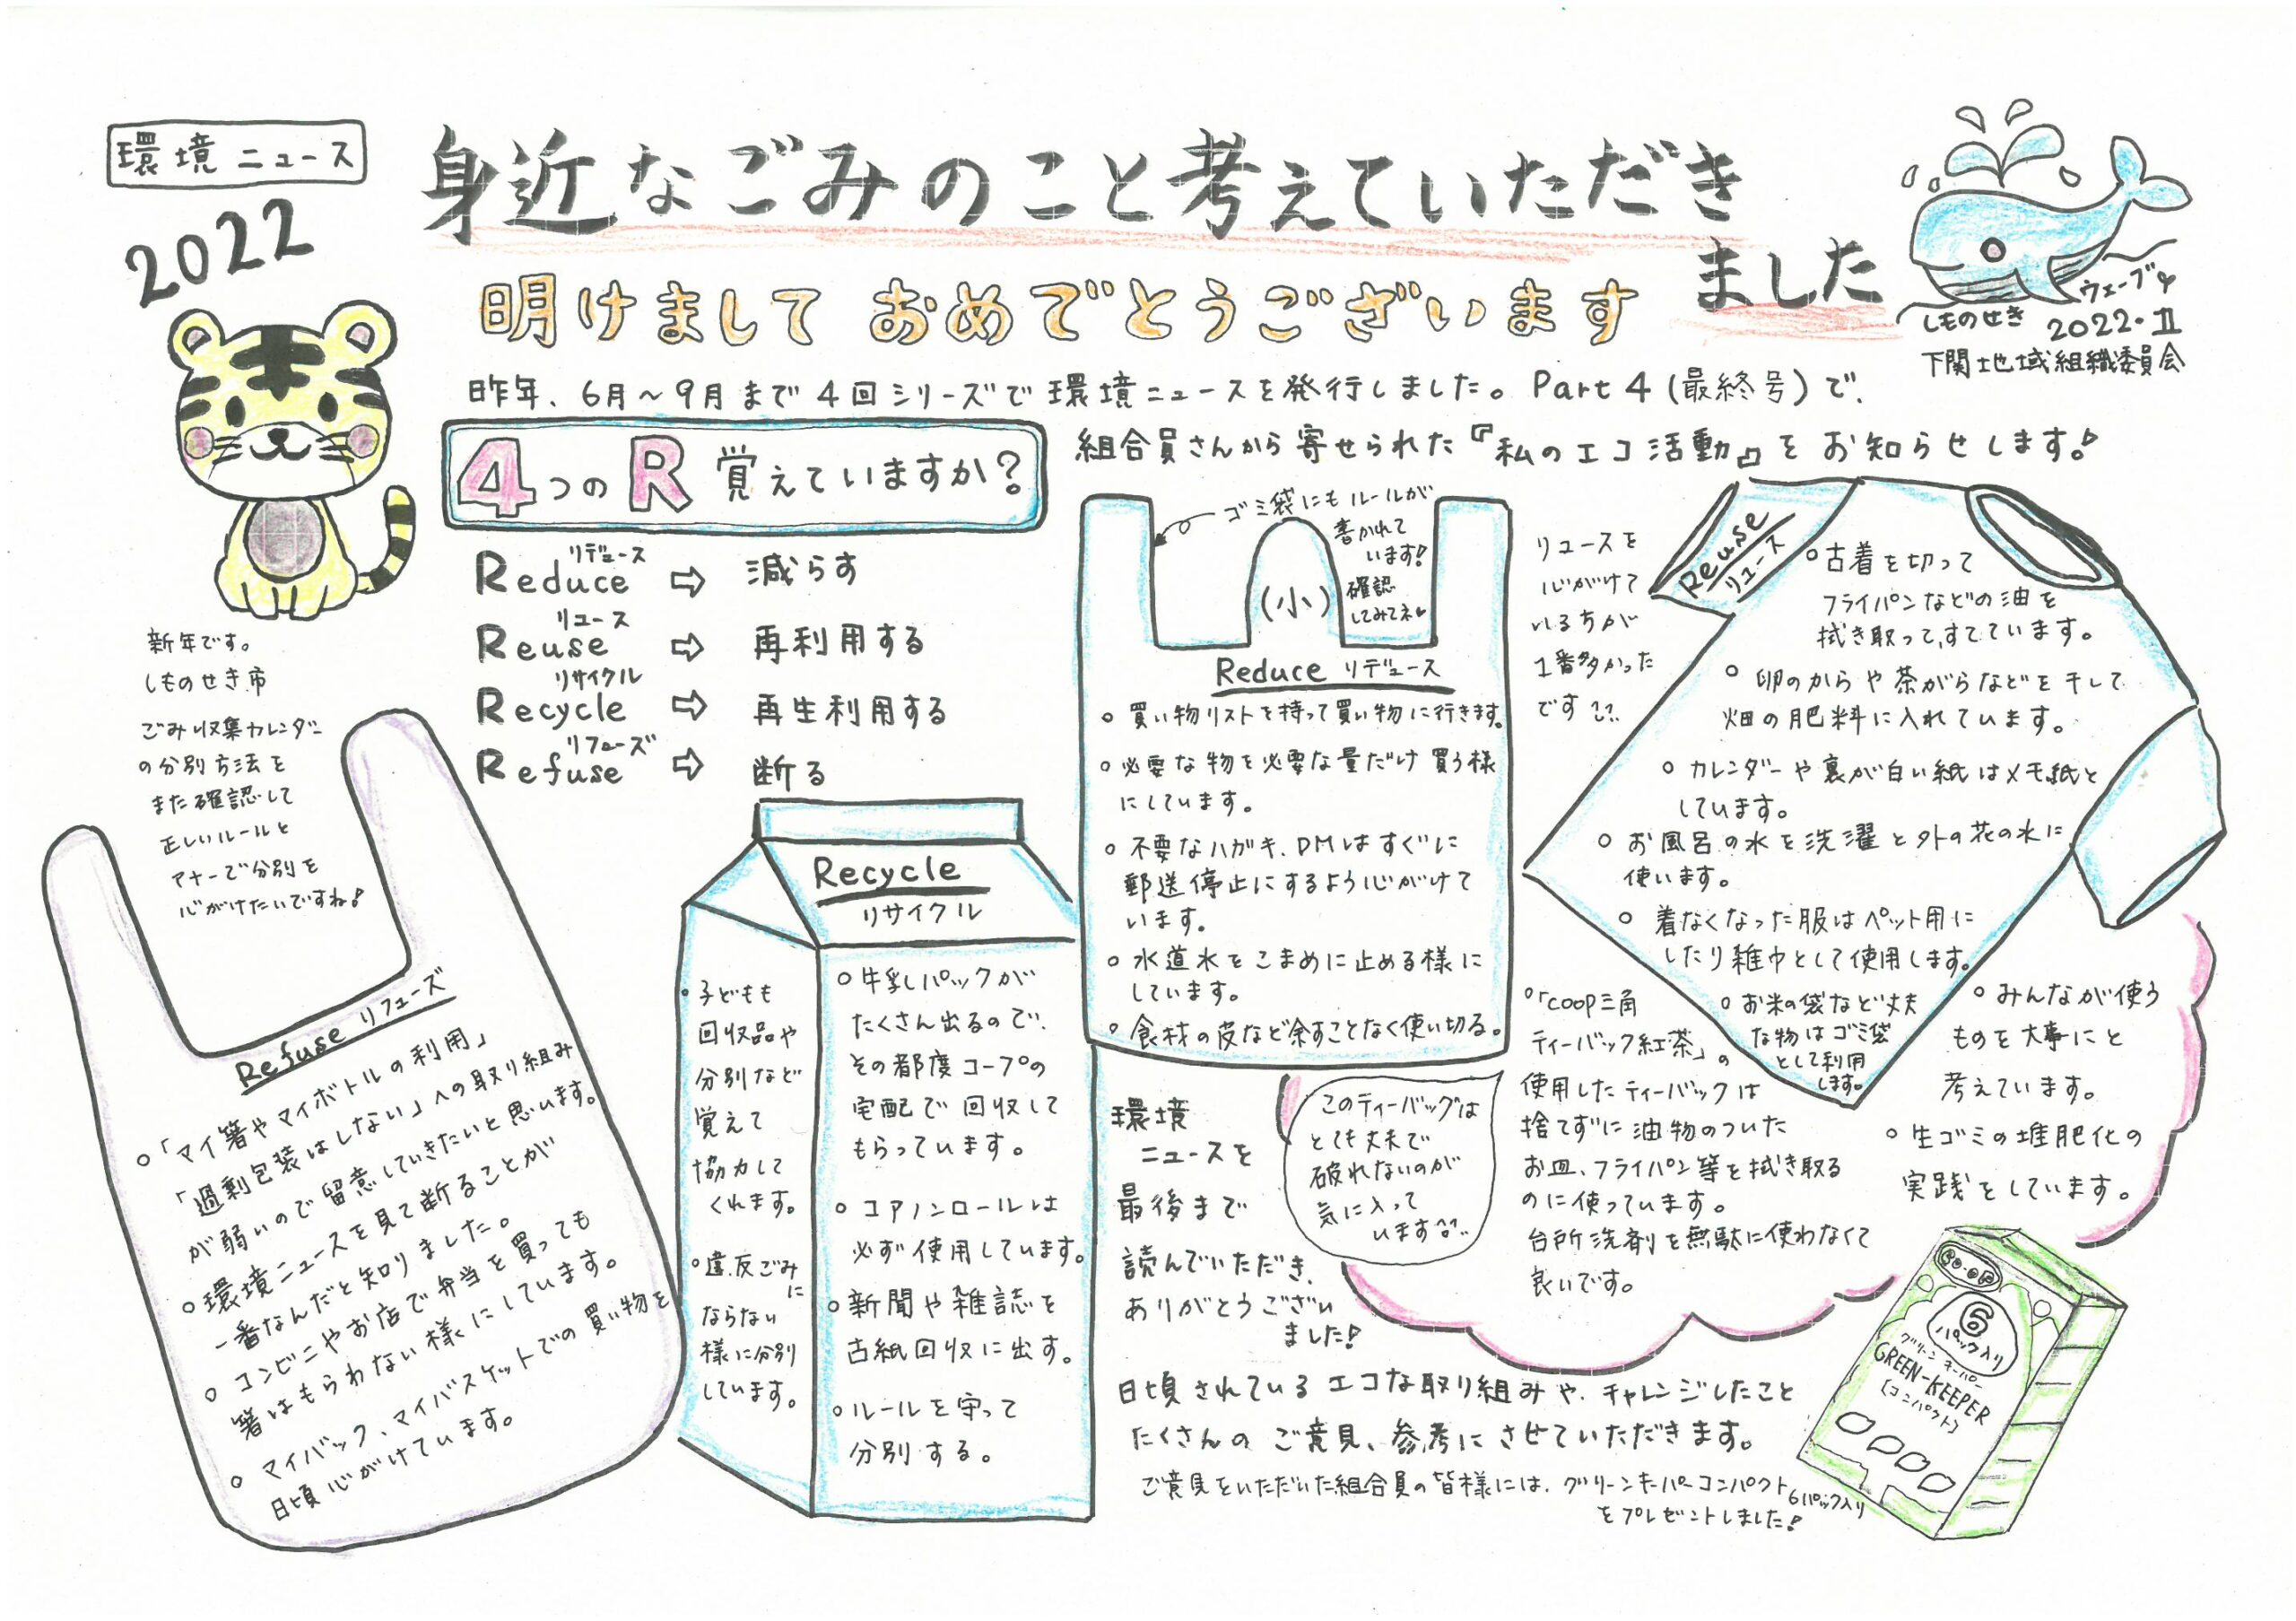 環境ニュース
2022
身近なごみのこと考えていただき
ました
明けまして おめでとうございます
ウェーブ
しものせき 2022.
下関地域組織委員会
昨年、6月～9月まで4回シリーズで環境ニュースを発行しました。Part4(最終号)で、
組合員さんから寄せられた『私のエコ活動』をお知らせします!
4つのR 覚えていますか?
リデュース
Reduce ⇨ 減らす
リユース
Reuse ⇨ 再利用する
リサイクル
Recycle ⇨ 再生利用する
リフューズ
Refuse ⇨ 断る
新年です。
しものせき市
ごみ収集カレンダー
の分別方法を
また確認して
正しいルールと
マナーで分別を
心がけたいですね!
Refuse リフューズ
○「マイ箸やマイボトルの利用」
「過剰包装はしない」への取り組み
が弱いので留意していきたいと思います。
○環境ニュースを見て断ることが
一番なんだと知りました。
○コンビニやお店で弁当を買っても
箸はもらわない様にしています。
○マイバック、マイバスケットでの買い物を
日頃心がけています。
Recycle
リサイクル
○子どもも
回収品や
分別など
覚えて
協力して
くれます。
○違反ごみ
に
ならない
様に分別
しています。
○牛乳パックが
たくさん出るので、
その都度コープの
宅配で回収して
もらっています。
○コアノンロールは
必ず使用しています。
○新聞や雑誌を
古紙回収に出す。
○ルールを守って
分別する。
ゴミ袋にもルールが
書かれて
います!
確認
してみてネ
(小)
Reduce リデュース
○買い物リストを持って買い物に行きます。
○必要な物を必要な量だけ買う様
にしています。
○不要なハガキ、DMはすぐに
郵送停止にするよう心がけて
います。
○水道水をこまめに止める様に
しています。
○食材の皮など余すことなく使い切る。
リユースを
心がけて
いる方が
1番多かった
です
Reuse
リユース
○古着を切って
フライパンなどの油を
拭き取って、すてています。
○卵のからや茶がらなどを干して
畑の肥料に入れています。
○カレンダーや裏が白い紙はメモ紙と
しています。
○お風呂の水を洗濯と外の花の水に
使います。
○着なくなった服はペット用に
したり雑巾として使用します。
○お米の袋など丈夫
な物はゴミ袋
として利用
します。
○「COOP三角
ティーバック紅茶」の
使用したティーバックは
捨てずに油物のついた
お皿、フライパン等を拭き取る
のに使っています。
台所洗剤を無駄に使わなくて
良いです。
○みんなが使う
ものを大事にと
考えています。
○生ゴミの堆肥化の
実践をしています。
このティーバッグは
とても丈夫で
破れないのが
気に入って
います
環境
ニュースを
最後まで
読んでいただき、
ありがとうござい
ました!
日頃されているエコな取り組みや、チャレンジしたこと
たくさんのご意見、参考にさせていただきます。
ご意見をいただいた組合員の皆様には、グリーンキーパーコンパクト6パック入り
をプレゼントしました!
CO・OP
6
パック入り
グリーンキーパー
GREEN-KEEPER
[コンパクト]